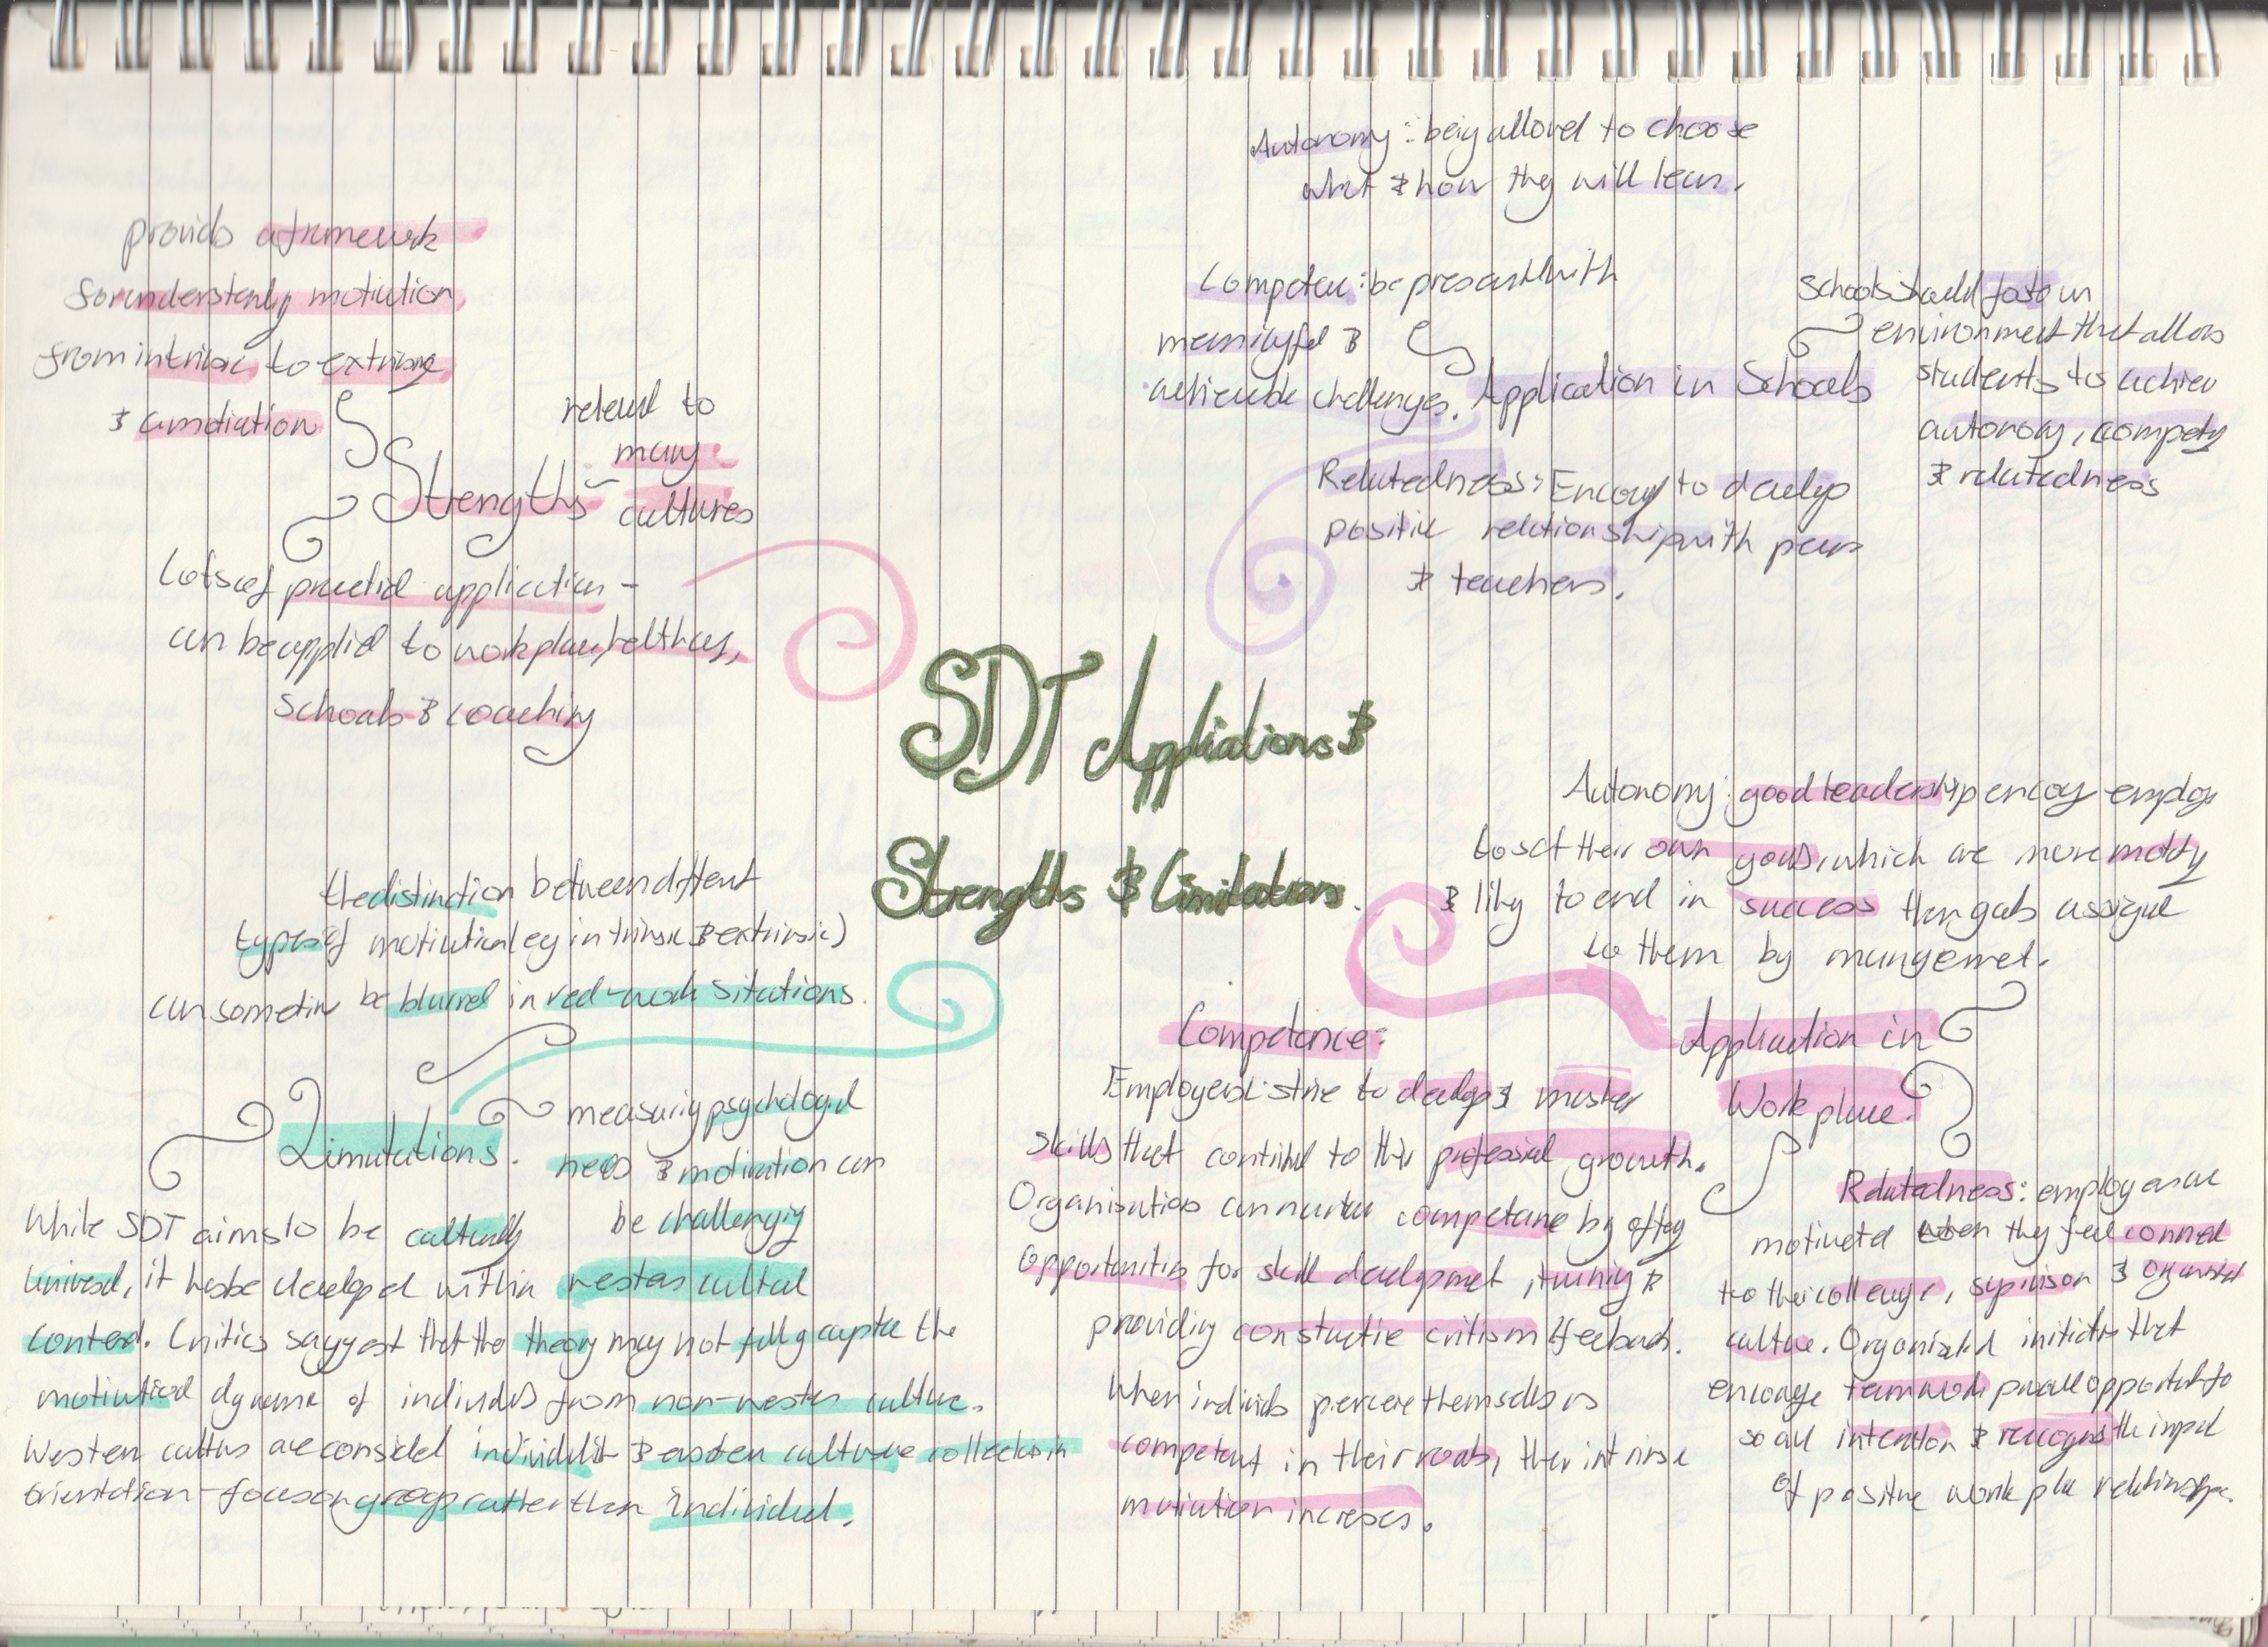 SDT Applications &
Strengths & Limitations.
Strengths
provids a framework
for understanding motivation,
from intrinsic to extrinsic
& amotiation
relevat to
many
cultures
Lots of practical application -
can be applied to workplace, healthcare,
Schools & coaching
Application in Schools
Autonomy: being allowed to choose
what & how they will learn.
Competence: be presented with
meaningful &
achievable challenges.
Relatedness: Encourage to develop
positive relationship with peers
& teachers.
Schools should foster an
environment that allows
students to achieve
autonomy, competency
& relatedness
Limitations.
the distinction between different
types of motivation (eg intrinsic & extrinsic)
can sometimes be blurred in real-world situations.
measuring psychological
needs & motivation can
be challenging
While SDT aims to be culturally
universal, it has be developed within western cultural
context. Critics suggest that the theory may not fully capture the
motivational dynamic of individuals from non-western culture.
Western cultures are considered individualist & eastern culture collectivism
orientation - focus on group rather than individual.
Application in
Workplace.
Autonomy: good leadership encourage employees
to set their own goals, which are more motivating
& likely to end in success than goals assigned
to them by management.
Competence:
Employees strive to develop & master
skills that contribute to their professional growth.
Organisations can nurture competence by offering
opportunities for skill development, training &
providing constructive critism & feedback.
When individuals perceive themselves as
competent in their roles, their intrinsic
motivation increases.
Relatedness: employees are
motivated when they feel connected
to their colleague, supervisors & organisational
culture. Organisational initiatives that
encourage teamwork, provide opportunities for
social interaction & recognise the impact
of positive workplace relationships.